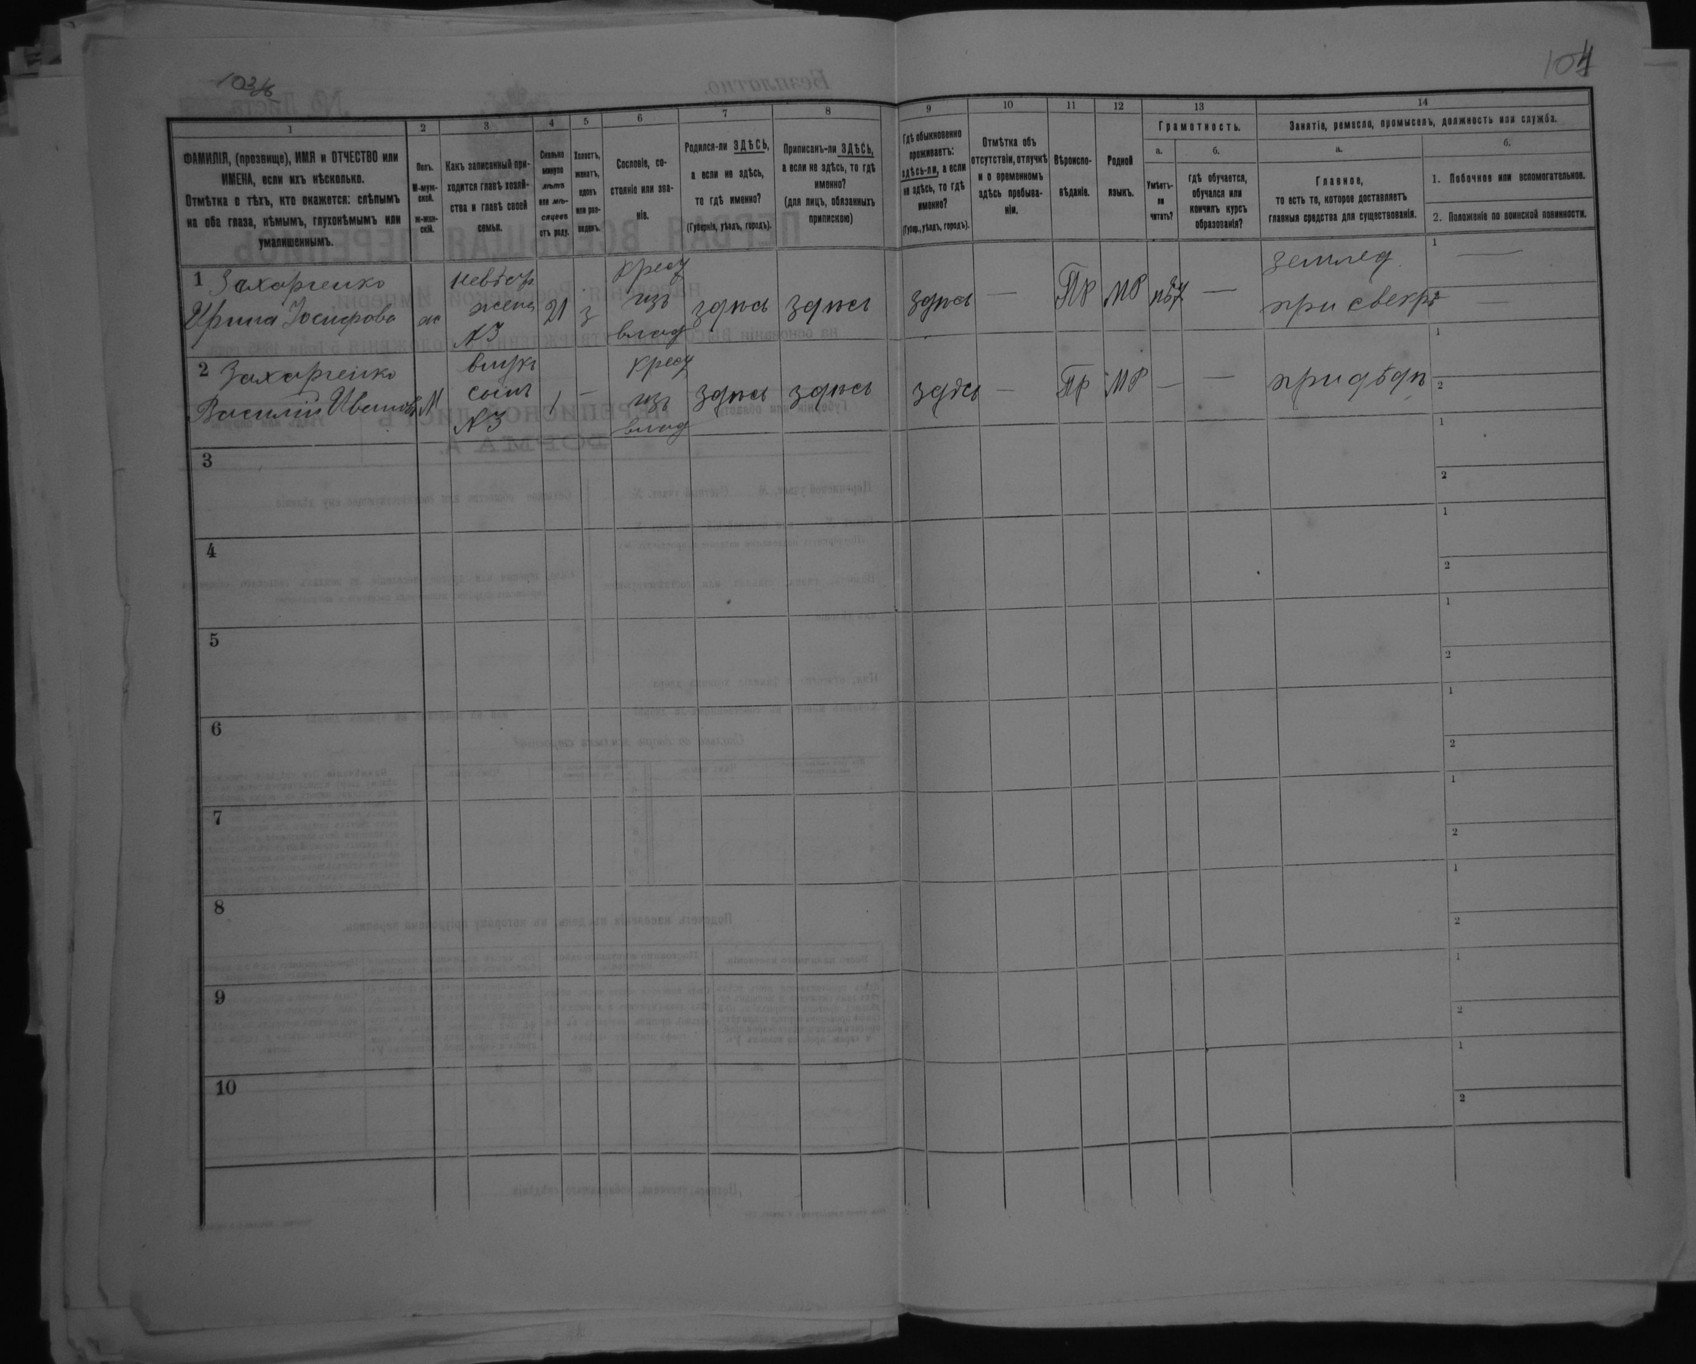 103об
104
1
2
3
4
5
6
7
8
9
10
11
12
13
14
ФАМИЛІЯ, (прозвище), ИМЯ и ОТЧЕСТВО или
ИМЕНА, если ихъ нѣсколько.
Отмѣтка о тѣхъ, кто окажется: слѣпымъ
на оба глаза, нѣмымъ, глухонѣмымъ или
умалишеннымъ.
Полъ.
М-муж-
ской.
Ж-жен-
скій.
Какъ записанный при-
ходится главѣ хозяй-
ства и главѣ своей
семьи.
Сколько
минуло
лѣтъ
или мѣ-
сяцевъ
отъ роду.
Холостъ,
женатъ,
вдовъ
или раз-
веденъ.
Сословіе, со-
стояніе или зва-
ніе.
Родился-ли ЗДѢСЬ,
а если не здѣсь,
то гдѣ именно?
(Губернія, уѣздъ, городъ).
Приписанъ-ли ЗДѢСЬ,
а если не здѣсь, то гдѣ
именно?
(для лицъ, обязанныхъ
припискою)
Гдѣ обыкновенно
проживаетъ:
здѣсь-ли, а если
не здѣсь, то гдѣ
именно?
(Губер., уѣздъ, городъ).
Отмѣтка объ
отсутствіи, отлучкѣ
и о временномъ
здѣсь пребыва-
ніи.
Вѣроиспо-
вѣданіе.
Родной
языкъ.
Грамотность.
а.
б.
Умѣетъ-
ли
читать?
гдѣ обучается,
обучался или
кончилъ курсъ
образованія?
Занятіе, ремесло, промыселъ, должность или служба.
а.
б.
Главное,
то есть то, которое доставляетъ
главныя средства для существованія.
1. Побочное или вспомогательное.
2. Положеніе по воинской повинности.
1 Захарченко
Ирина Іосифова
ж
невѣст
жена
№3
21
з
крест
изъ
влад
здѣсь
здѣсь
здѣсь
—
Пр
МР
нѣт
—
землед
при свекрѣ
1 —
—
2 Захарченко
Василій Иванов
М
внукъ
сынъ
№3
1
—
крест
изъ
влад
здѣсь
здѣсь
здѣсь
—
Пр
МР
—
—
при дѣдѣ
1
2
3
1
2
4
1
2
5
1
2
6
1
2
7
1
2
8
1
2
9
1
2
10
1
2